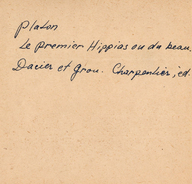 Platon
Le premier Hippias ou du beau.
Dacier et Grou. Charpentier, ed.